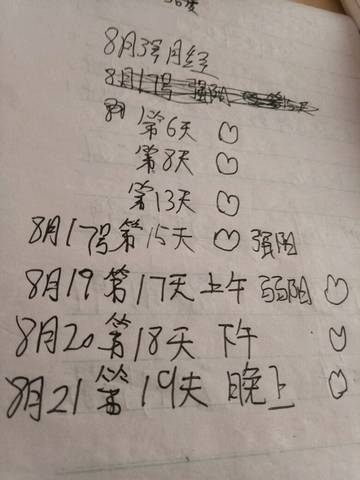 8月3号月经
8月17号 强阳
第6天
第8天
第13天
8月17号第15天 强阳
8月19第17天上午 弱阳
8月20第18天 下午
8月21第19天 晚上